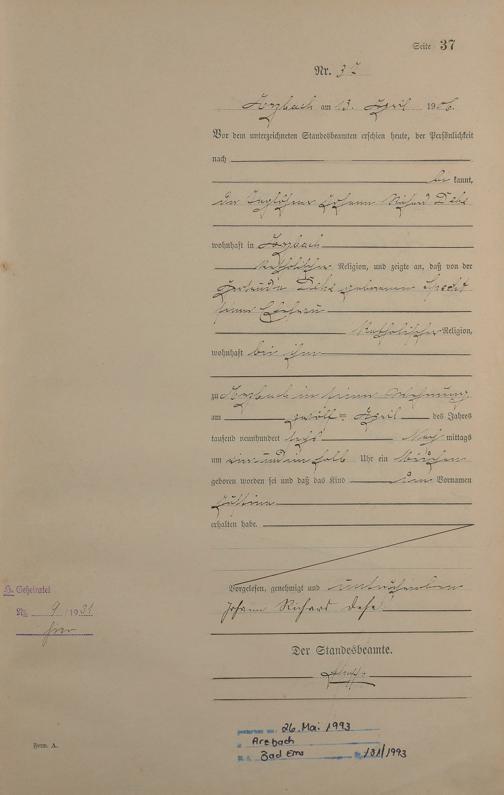 Seite 37
Nr. 37
am 13. April 1906.
Vor dem unterzeichneten Standesbeamten erschien heute, der Persönlichkeit
nach
be kannt,
der Taglöhner Johann Richard
wohnhaft in
katholischer Religion, und zeigte an, daß von der
Gertrude geborenen Specht
seiner Ehefrau
katholischer Religion,
wohnhaft bei ihm
zu in seiner Wohnung
am zwölf = April des Jahres
tausend neunhundert sechs Nach mittags
um ein und ein halb Uhr ein Mädchen
geboren worden sei und daß das Kind den Vornamen
erhalten habe.
Vorgelesen, genehmigt und unterschrieben
Johann Richard
Der Standesbeamte.
H. Geheiratet
Nr. 9/1931
hier
Form. A.
gestorben am: 26. Mai 1993
Arzbach
Bad Ems Nr. 131/1993